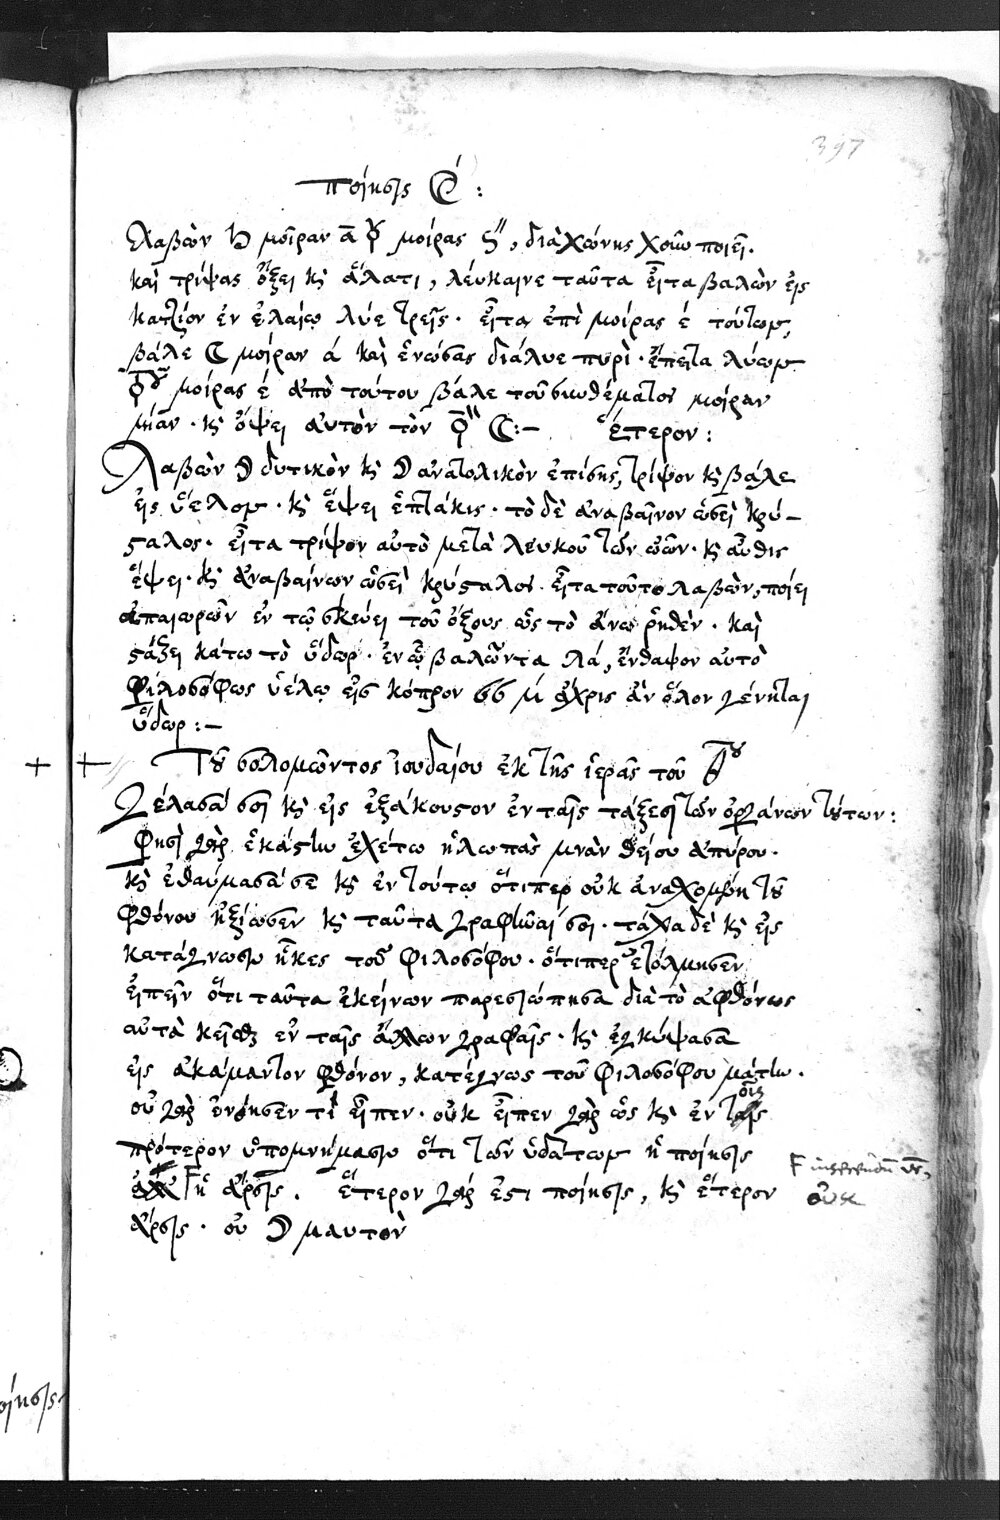 397
ποίησις ☾:
Λαβὼν ♄ μοῖραν ᾱ μοίρας ϛ, διὰ χώνης χοῶ ποιεῖ.
καὶ τρίψας ὄξει κὶ ἅλατι, λεύκαινε ταῦτα εἶτα βαλὼν εἰς
κατζίον ἐν ἐλαίῳ λύε τρεῖς. εἶτα ἐπὶ μοίρας έ τούτων,
βάλε ☾ μοίραν ά καὶ ἑνώσας διάλυε πυρὶ. ἔπειτα λύων
μοίρας έ ἀπὸ τούτου βάλε τοῦ συνθέματος μοίραν
μίαν. κὶ ὄψει αὐτὸν τὸν ☾:— ἕτερον:
Λαβὼν ☽ δυτικὸν κὶ ☽ ἀνατολικὸν ἐπίσης, τρίψον κὶ βάλε
εἰς ὕελον. κὶ ἕψει ἑπτάκις. τὸ δὲ ἀναβαῖνον ὡσεὶ κρύ-
σταλος. εἶτα τρίψον αὐτὸ μετὰ λευκοῦ τῶν ὠῶν. κὶ αὖθις
ἕψει. κὶ ἀναβαίνων ὡσεὶ κρύσταλος. εἶτα τοῦτο λαβὼν, ποίει
ἀπαιωρῶν ἐν τῷ σκεύει τοῦ ὄξους ὡς τὸ ἄνω ῥηθὲν. καὶ
στάξει κάτω τὸ ὕδωρ. ἐν ᾧ βαλῶντα λά, ἔνθαψον αὐτὸ
φιλοσόφως ὑέλῳ εἰς κόπρον μ ἄχρις ἂν ὅλον γένηται
ὕδωρ:—
Τοῦ σολομῶντος ἰουδαίου ἐκ τῆς ἱερᾶς τοῦ
γέλασά σοι κὶ εἰς ἐξάκουστον ἐν ταῖς τάξεσι τῶν ὀργάνων τούτων:
φησὶ γὰρ ἑκάστω ἐχέτω ἡ λωπὰς μνὰν θείου ἀπύρου.
κὶ ἐθαύμασά σε κὶ ἐν τούτῳ ὅτιπερ οὐκ τοῦ
φθόνου ἠξίωσεν κὶ ταῦτα γραφῆναί σοι. τάχα δὲ κὶ εἰς
κατάγνωσιν ἧκες τοῦ φιλοσόφου. ὅτιπερ ἐτόλμησεν
εἰπεῖν ὅτι ταῦτα ἐκείνων παρεσιώπησα διὰ τὸ ἀφθόνως
αὐτὰ κεῖσθαι ἐν ταῖς ἄλλων γραφαῖς. κὶ ἐγκύψασα
εἰς ἀκάμαντον φθόνον, κατέγνως τοῦ φιλοσόφου μάτην.
οὐ γὰρ ἐνόησεν τί εἶπεν. οὐκ εἶπεν γὰρ ὡς κὶ ἐν τοῖς
πρότερον ὑπομνήμασιν ὅτι τῶν ὑδάτων ἡ ποίησις
ἡ ἄρσις. ἕτερον γάρ ἐστι ποίησις, κὶ ἕτερον
οὐκ
ἄρσις. οὐ ☽ μαυτὸν
οίησις.